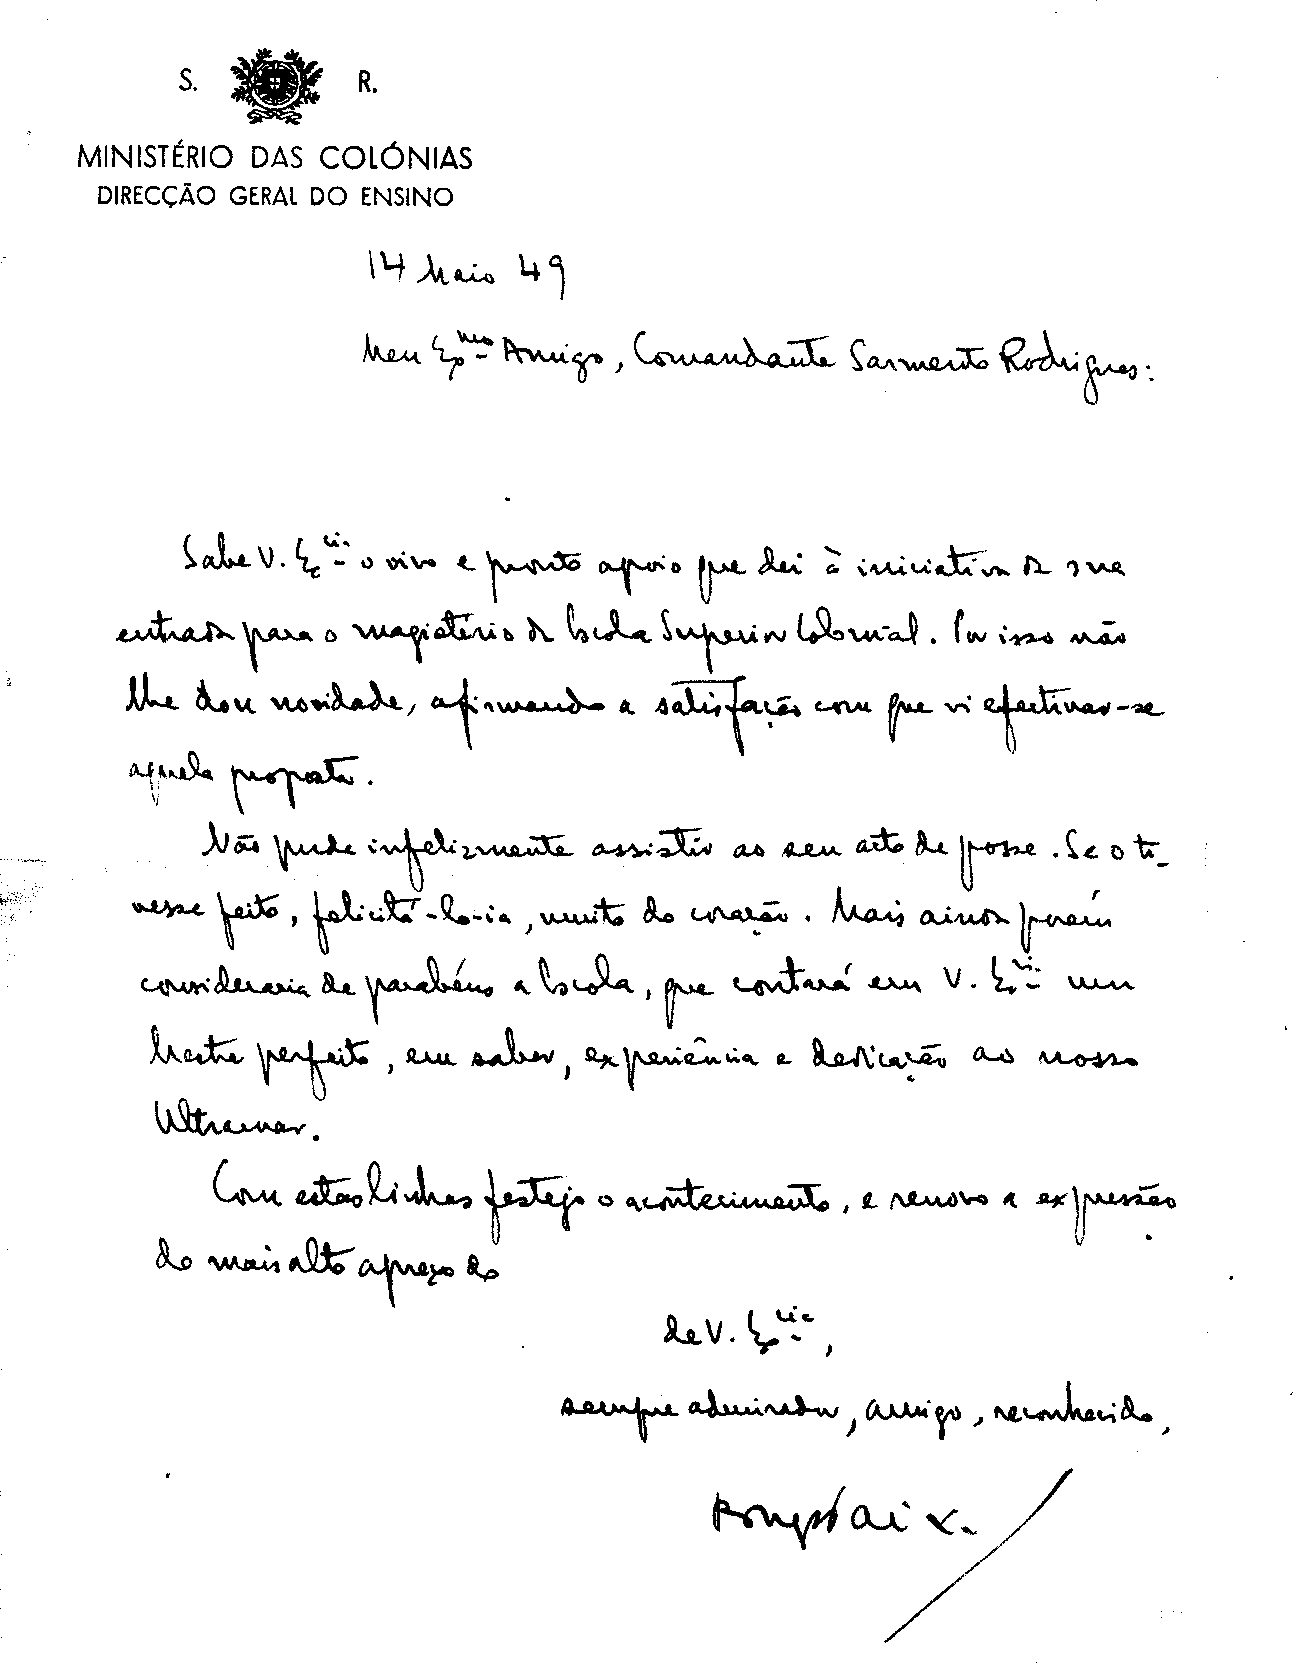 S. R.
MINISTÉRIO DAS COLÓNIAS
DIRECÇÃO GERAL DO ENSINO
14 Maio 49
Meu Exmo Amigo, Comandante Sarmento Rodrigues:
Sabe V. Excia o vivo e pronto apoio que dei à iniciativa da sua
entrada para o magistério da Escola Superior Colonial. Por isso não
lhe dou novidade, afirmando a satisfação com que vi efectivar-se
aquela proposta.
Não pude infelizmente assistir ao seu acto de posse. Se o ti-
vesse feito, felicitá-lo-ia, muito do coração. Mais ainda porém
consideraria de parabéns a Escola, que contará em V. Excia um
Mestre perfeito, em saber, experiência e dedicação ao nosso
Ultramar.
Com estas linhas festejo o acontecimento, e renovo a expressão
do mais alto apreço do
de V. Excia,
sempre admirador, amigo, reconhecido,